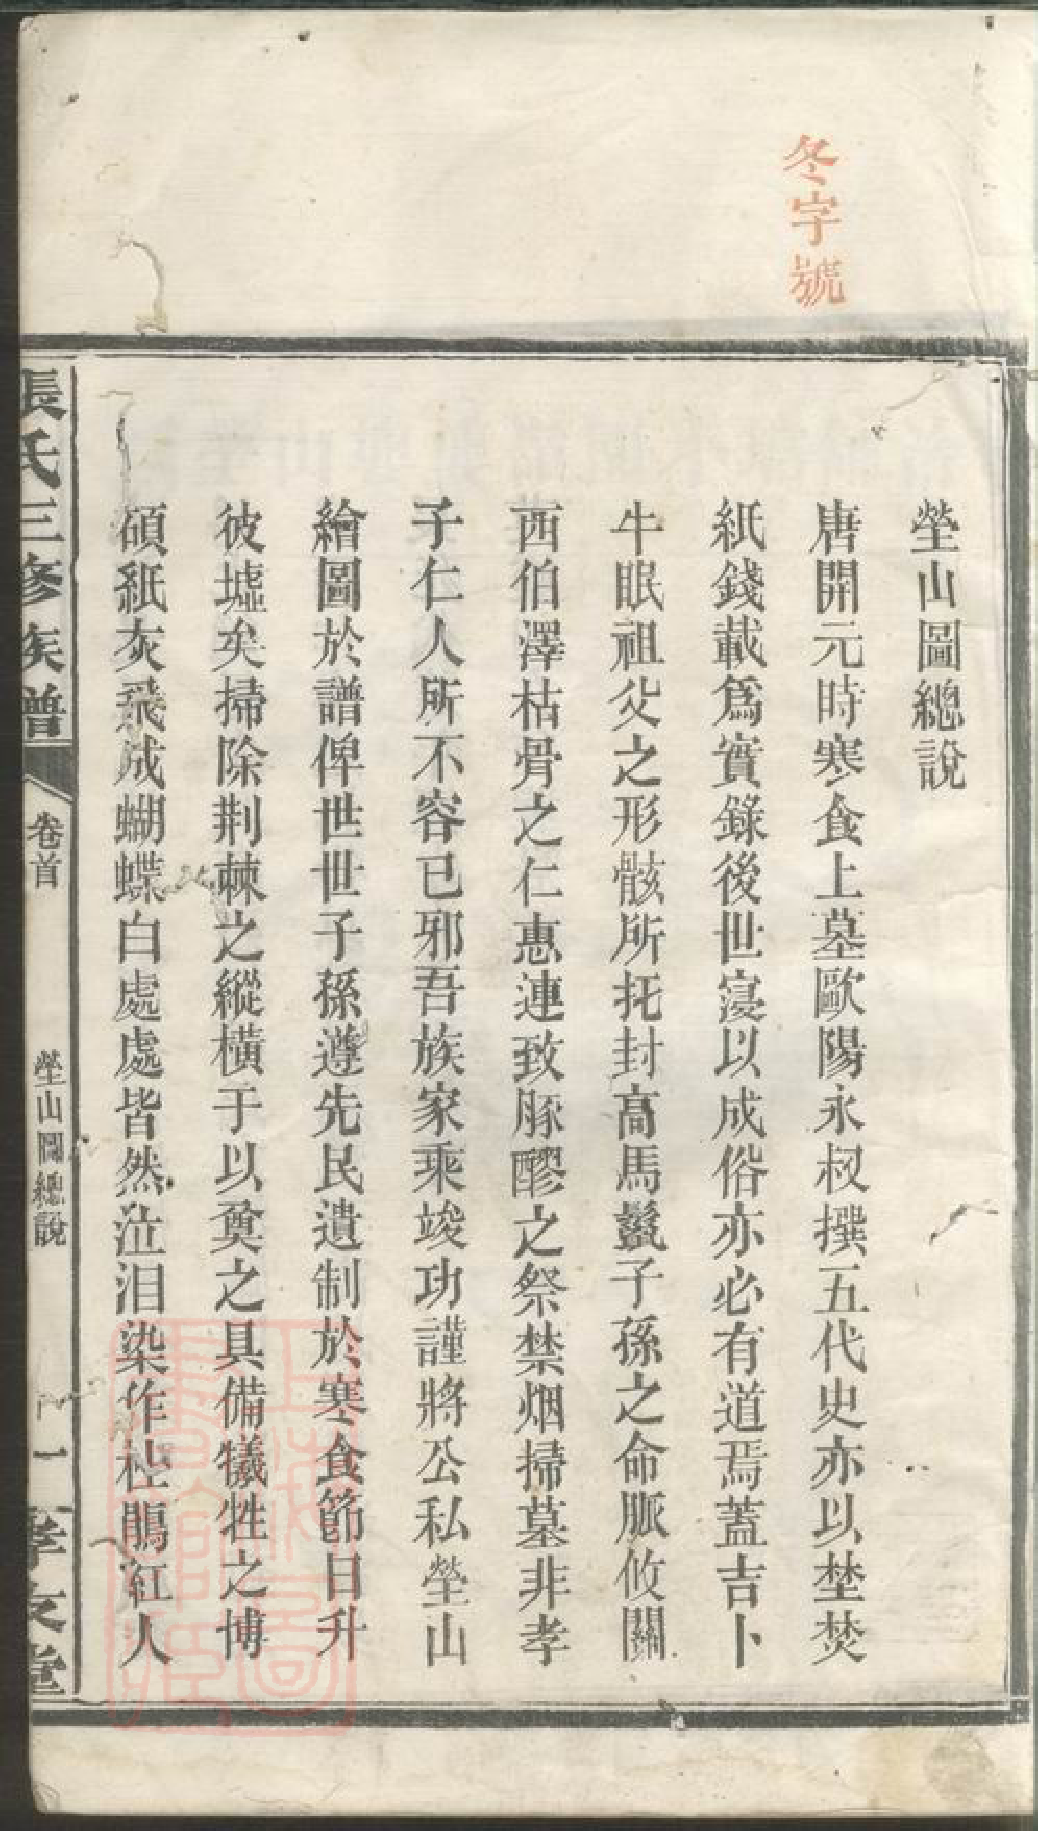 冬字號
塋山圖總說
唐開元時寒食上墓歐陽永叔撰五代史亦以埜焚
紙錢載爲實錄後世寖以成俗亦必有道焉蓋吉卜
牛眠祖父之形骸所托封高馬鬣子孫之命脈攸關
西伯澤枯骨之仁惠連致豚醪之祭禁烟掃墓非孝
子仁人所不容已邪吾族家乘竣功謹將公私塋山
繪圖於譜俾世世子孫遵先民遺制於寒食節日升
彼墟矣掃除荆棘之縱橫于以奠之具備犧牲之博
碩紙灰飛成蝴蝶白處處皆然泣泪染作杜鵑紅人
張氏三修族譜
卷首
塋山圖總說
一
孝友堂